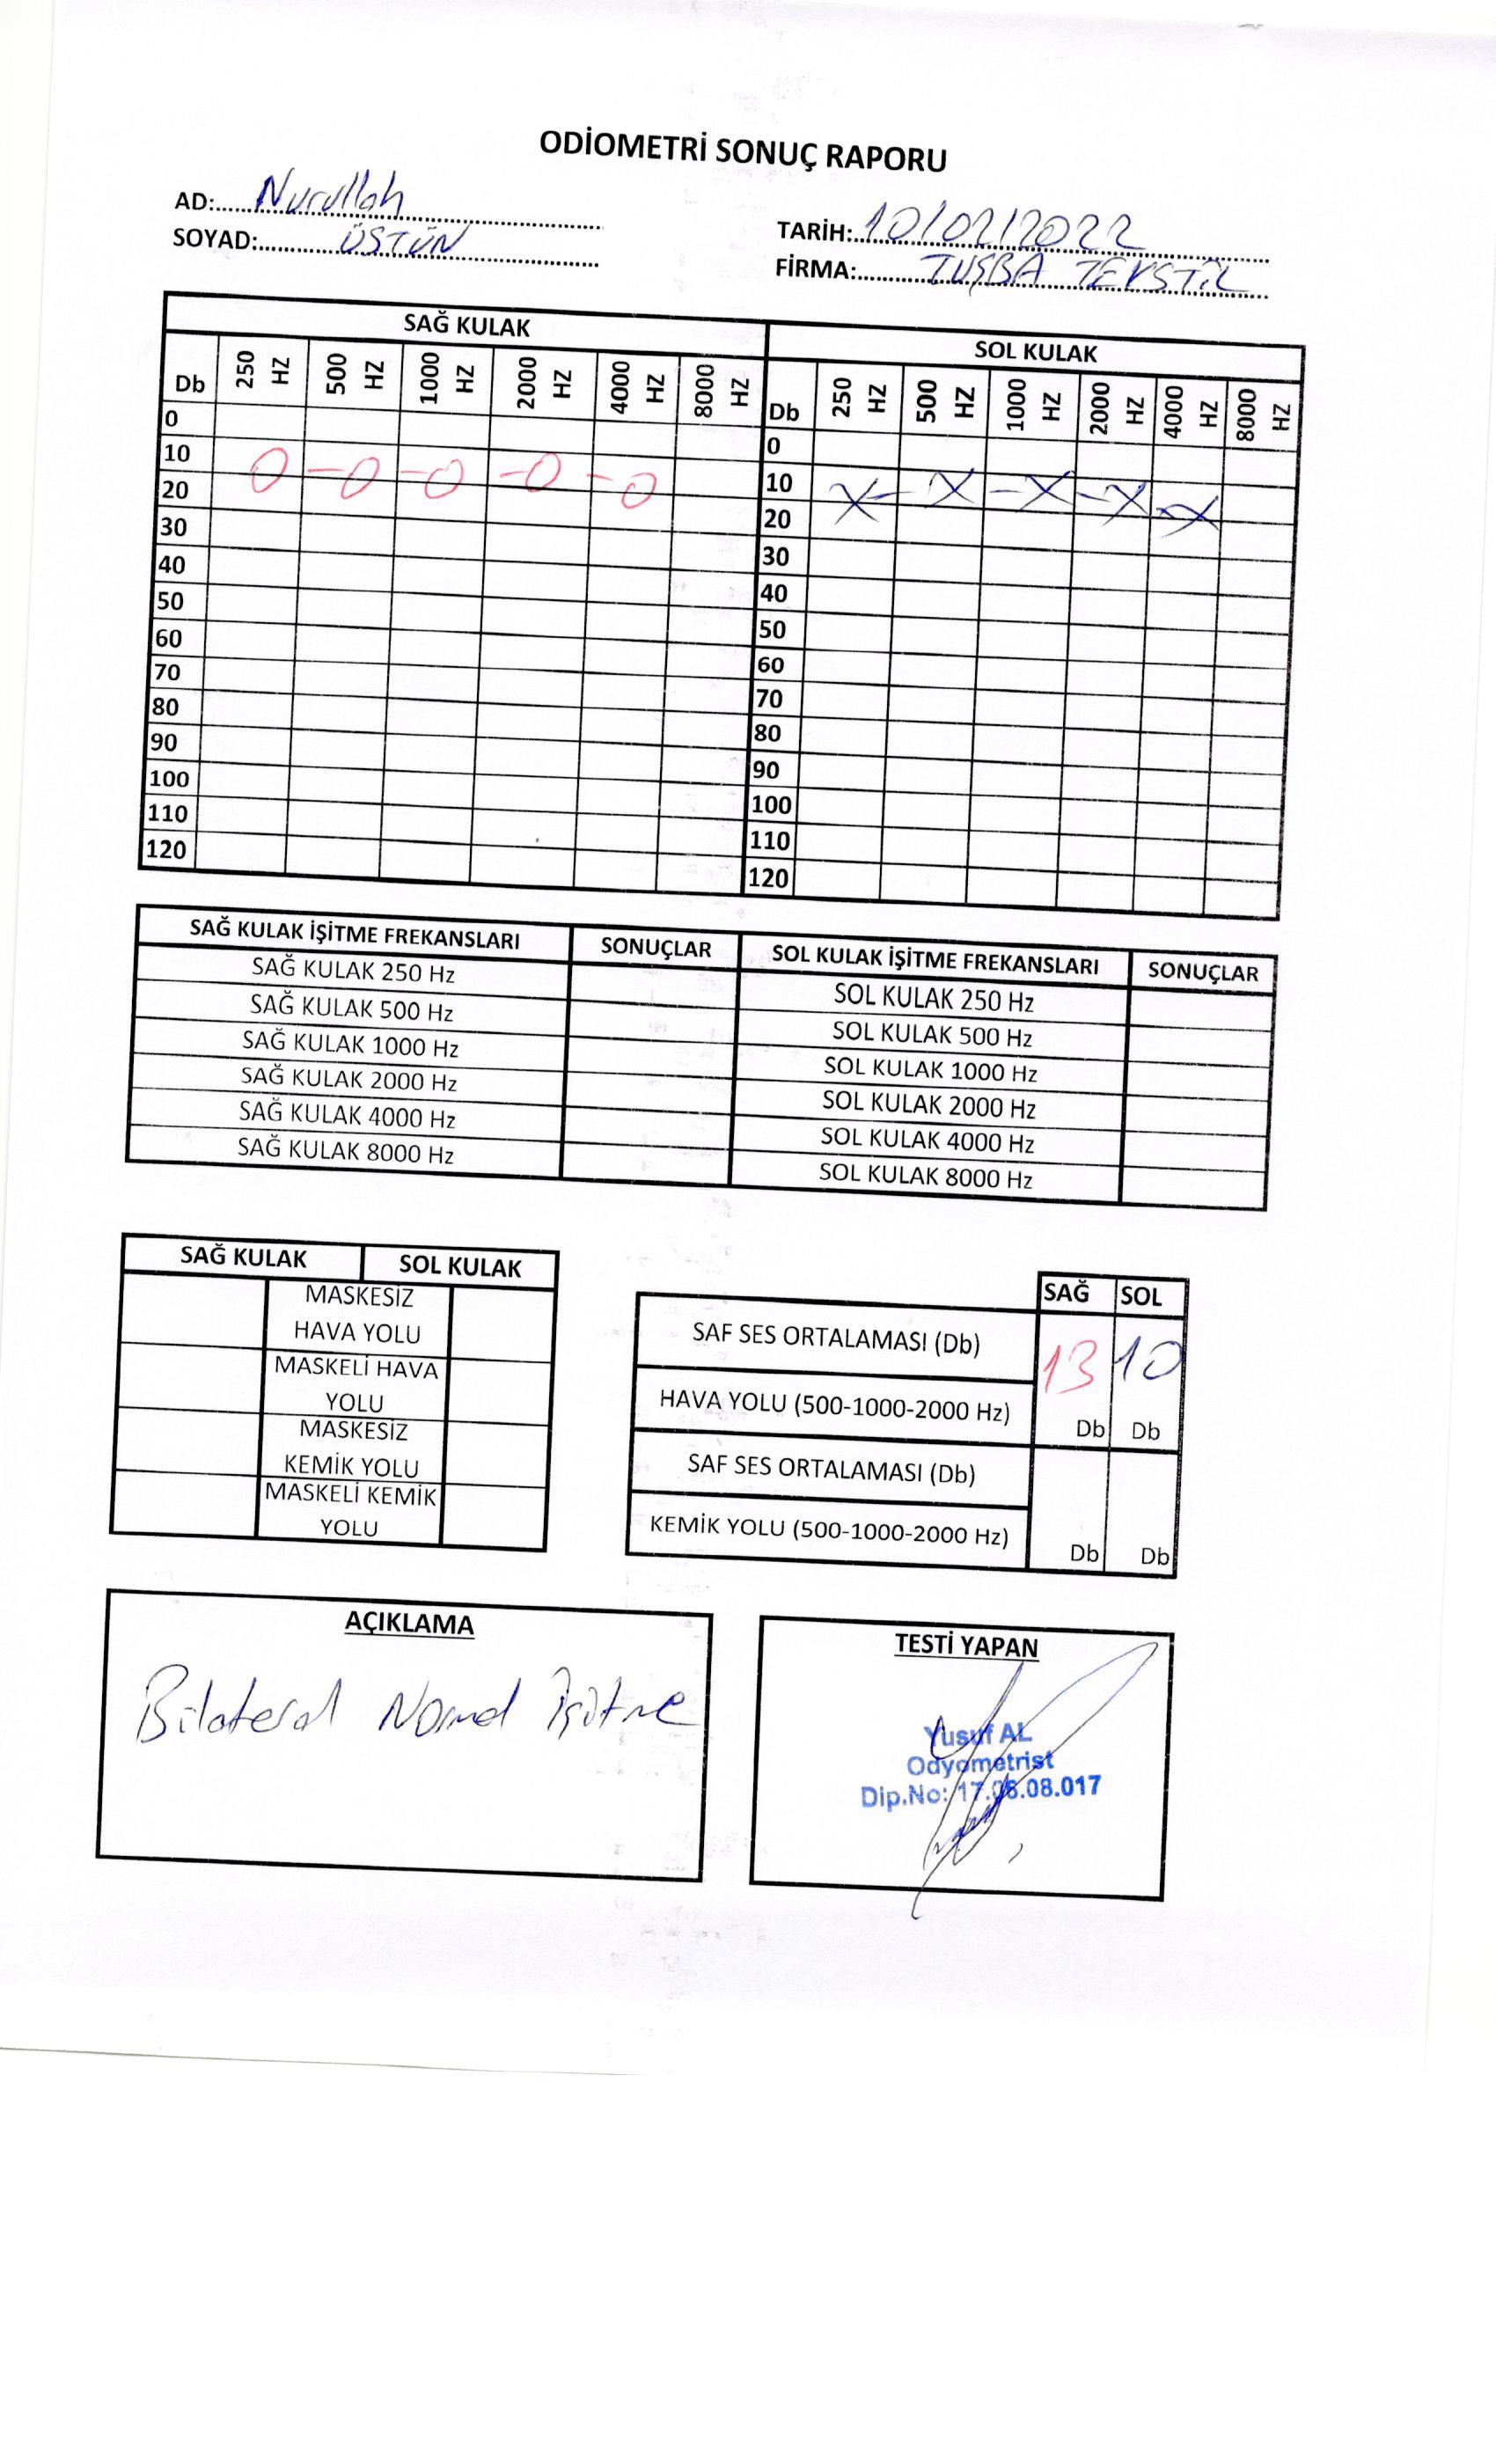 ODİOMETRİ SONUÇ RAPORU
AD: Nurullah
SOYAD: ÜSTÜN
TARİH: 10/02/2022
FİRMA: TUŞBA TEKSTİL
SAĞ KULAK
SOL KULAK
Db 250 HZ 500 HZ 1000 HZ 2000 HZ 4000 HZ 8000 HZ
Db 250 HZ 500 HZ 1000 HZ 2000 HZ 4000 HZ 8000 HZ
0 0
10 10
20 20
30 30
40 40
50 50
60 60
70 70
80 80
90 90
100 100
110 110
120 120
SAĞ KULAK İŞİTME FREKANSLARI SONUÇLAR SOL KULAK İŞİTME FREKANSLARI SONUÇLAR
SAĞ KULAK 250 Hz SOL KULAK 250 Hz
SAĞ KULAK 500 Hz SOL KULAK 500 Hz
SAĞ KULAK 1000 Hz SOL KULAK 1000 Hz
SAĞ KULAK 2000 Hz SOL KULAK 2000 Hz
SAĞ KULAK 4000 Hz SOL KULAK 4000 Hz
SAĞ KULAK 8000 Hz SOL KULAK 8000 Hz
SAĞ KULAK SOL KULAK
MASKESİZ
HAVA YOLU
MASKELİ HAVA
YOLU
MASKESİZ
KEMİK YOLU
MASKELİ KEMİK
YOLU
SAĞ SOL
SAF SES ORTALAMASI (Db) 13 10
HAVA YOLU (500-1000-2000 Hz) Db Db
SAF SES ORTALAMASI (Db)
KEMİK YOLU (500-1000-2000 Hz) Db Db
AÇIKLAMA
Bilateral Normal İşitme
TESTİ YAPAN
Yusuf AL
Odyometrist
Dip.No: 17.08.08.017